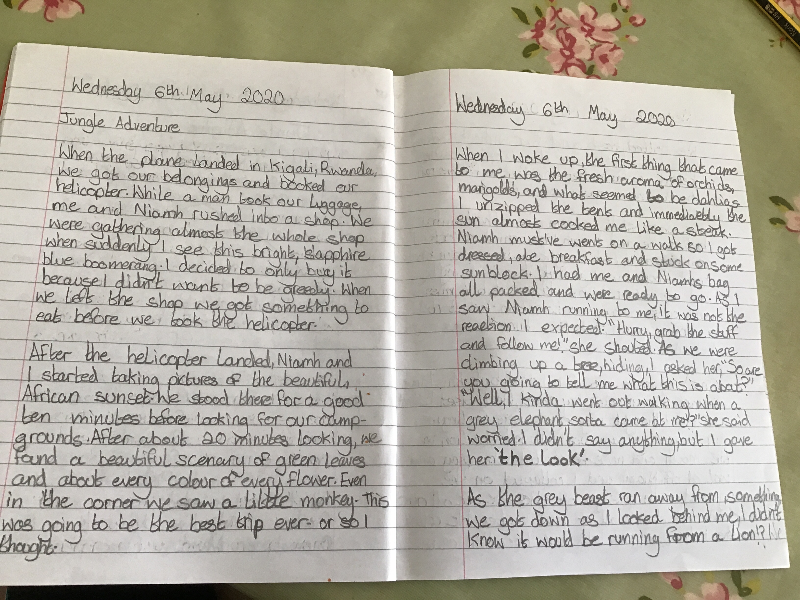 Wednesday 6th May 2020
Jungle Adventure
When the plane landed in Kigali, Rwanda,
we got our belongings and booked our
helicopter. While a man took our luggage,
me and Niamh rushed into a shop. We
were gathering almost the whole shop
when suddenly I see this bright, sapphire
blue boomerang. I decided to only buy it
because I didn't want to be greedy. When
we left the shop we got something to
eat before we took the helicopter.
After the helicopter landed, Niamh and
I started taking pictures of the beautiful,
African sunset. We stood there for a good
ten minutes before looking for our camp-
grounds. After about 20 minutes looking, we
found a beautiful scenary of green leaves
and about every colour of every flower. Even
in the corner we saw a little monkey. This
was going to be the best trip ever- or so I
thought.
Wednesday 6th May 2020
When I woke up, the first thing that came
to me was the fresh aroma of orchids,
marigolds, and what seemed to be dahlias.
I unzipped the tent and immediately the
sun almost cooked me like a steak.
Niamh must've went on a walk so I got
dressed, ate breakfast and stuck on some
sunblock. I had me and Niamhs bag
all packed and were ready to go. As I
saw Niamh running to me, it was not the
reaction I expected. "Hurry, grab the stuff
and follow me!" she shouted. As we were
climbing up a tree, hiding, I asked her, "So are
you going to tell me what this is abat?"
"Well, I kinda went out walking when a
grey elephant sorta came at me?" she said
worried. I didn't say anything, but I gave
her 'the look'.
As the grey beast ran away from something
we got down as I looked behind me, I didn't
know it would be running from a lion?!